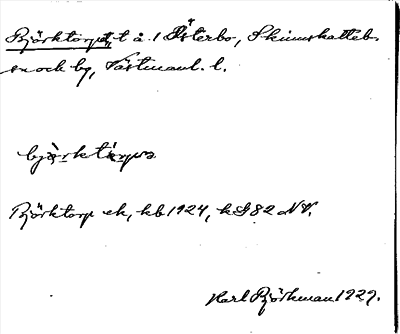 Björktorp, t å. 1 Österbo, Skinnskatteb.
sn och bg, Västmanl. l.
bjö̀rktórpa
Björktorp ek, kb 1924, kS 82 NV.
Karl Björkman 1929.